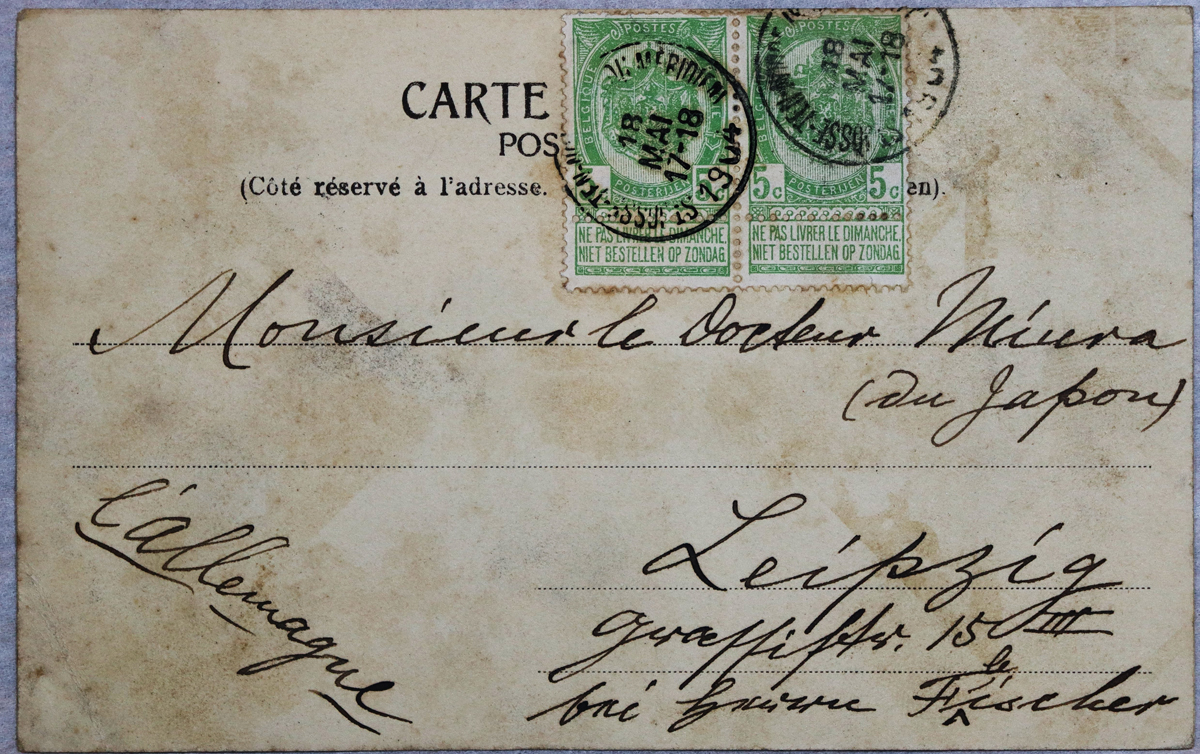 CARTE
POS
(Côté réservé à l'adresse.
en).
POSTES
BELGIQUE
POSTERIJEN
NE PAS LIVRER LE DIMANCHE,
NIET BESTELLEN OP ZONDAG.
18
MAI
17-18
1904
POSTES
BELGIQUE
5c POSTERIJEN 5c
NE PAS LIVRER LE DIMANCHE,
NIET BESTELLEN OP ZONDAG.
18
MAI
17-18
Monsieur le Docteur Miura
(du Japon)
L'allemagne
Leipzig
Grassistr. 15 III
bei Herrn Fischer